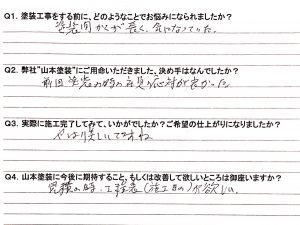 Q1. 塗装工事をする前に、どのようなことでお悩みになられましたか？
塗装間かくが長く、気になっていた。
Q2. 弊社"山本塗装"にご用命いただきました、決め手はなんでしたか？
前回塗装の時の応対が良かった。
Q3. 実際に施工完了してみて、いかがでしたか？ご希望の仕上がりになりましたか？
やはり美しいですね
Q4. 山本塗装に今後に期待すること、もしくは改善して欲しいところは御座いますか？
見積の時、工程表(施工日の)が欲しい。